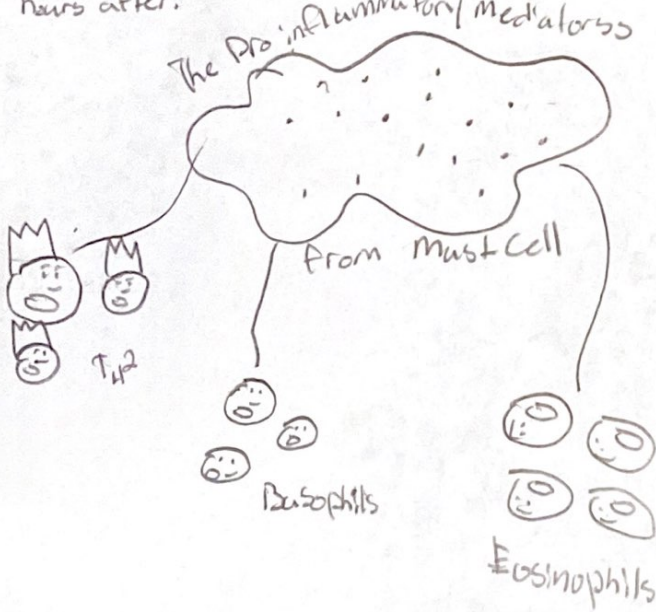 hours after.
The Pro inflammatory mediatorss
from Mast Cell
TH2
Basophils
Eosinophils